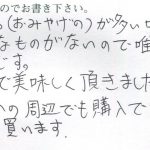 のでお書き下さい。
(おみやげの)が多い中
なものがないので唯
です。
で美味しく頂きました
の周辺でも購入で
買います.